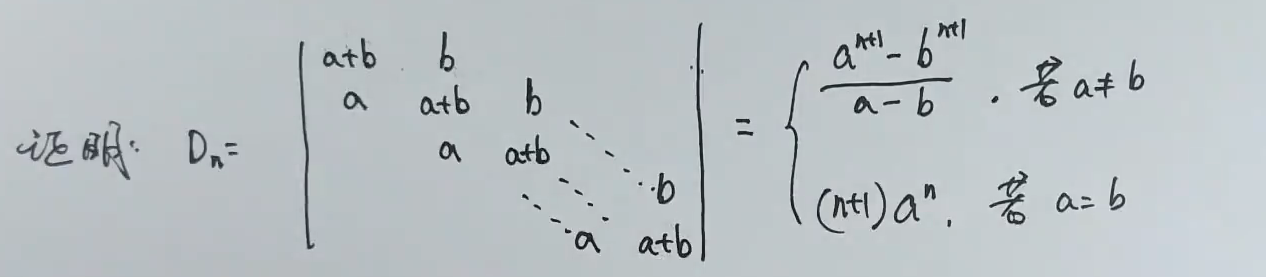 证明: Dₙ = | a+b b
a a+b b
a a+b ⋱ b
a a+b | = { (aⁿ⁺¹ - bⁿ⁺¹)/(a - b). 若 a≠b
(n+1)aⁿ. 若 a=b